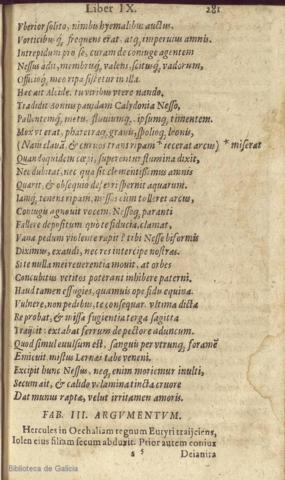 Liber IX. 281
Vberior solito, nimbis hyemalibus auctus.
Vorticibusq́, frequens erat, atq, imperuius amnis.
Intrepidum pro se, curam de coniuge agentem
Nessus adit, membrisq́, valens, scitusq́, vadorum,
Officioq́, meo ripa sistetur in illa.
Hæc ait Alcide. tu viribus vtere nando,
Tradidit Aonius pauidam Calydonia Nesso,
Pallentemq́, metu, fluuiumq́, ipsumq́, timentem.
Mox vt erat, pharetraq́, grauis, spolioq́, leonis,
(Nam clauã & curuos trans ripam * iecerat arcus) * miserat
Quandoquidem cœpi, superentur flumina dixit,
Nec dubitat, nec qua sit clementissimus amnis
Quærit, & obsequio deferri spernit aquarum.
Iamq́, tenens ripam, missos cum tolleret arcus,
Coniugis agnouit vocem. Nessoq́, paranti
Fallere depositum quo te fiducia, clamat,
Vana pedum violente rapit? tibi Nesse biformis
Dicimus, exaudi, nec res intercipe nostras.
Si te nulla mei reuerentia mouit, at orbes
Concubitus vetitos poterant inhibere paterni.
Haud tamen effugies, quamuis ope fidis equina.
Vulnere, non pedibus te consequar. vltima dicta
Re probat, & missa fugientia terga sagitta
Traijcit: extabat ferrum de pectore aduncum.
Quod simul euulsum est, sanguis per vtrunq́, foramẽ
Emicuit mistus Lernæi tabe veneni.
Excipit hunc Nessus. neq́, enim moriemur inulti,
Secum ait, & calido velamina tincta cruore
Dat munus raptæ, velut irritamen amoris.
FAB. III. ARGVMENTVM.
Hercules in Oechaliam regnum Euryti traijciens,
Iolen eius filiam secum abduxit. Prior autem coniux
s 5 Deianira
Biblioteca de Galicia